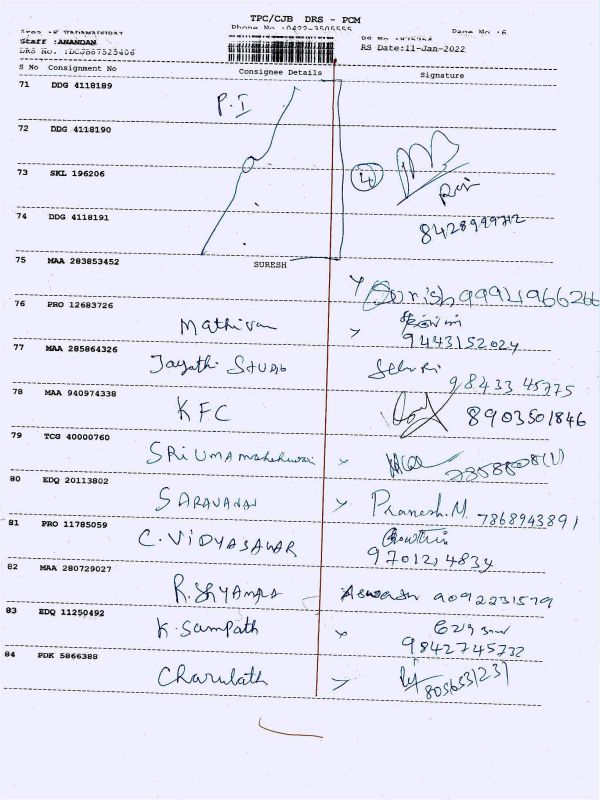 TPC/CJB DRS - PCM
Phone No :0422-3505555
Page No :6
Staff :ANANDAN
DRS No. :DCJB87523406
RS Date:11-Jan-2022
S No Consignment No Consignee Details Signature
71 DDG 4118189
P.I
72 DDG 4118190
73 SKL 196206
4
74 DDG 4118191
8428999712
75 MAA 283853452 SURESH
Surish 9994966266
76 PRO 12683726
Mathivan
9443152024
77 MAA 285864326
Jayathi Studio
98433 45775
78 MAA 940974338
KFC 8903501846
79 TCG 40000760
SRI UMA Maheshwari
80 EDQ 20113802
SARAVANAN Pranesh.M. 7868943891
81 PRO 11785059
C. VIDYASAWAR
82 MAA 280729027
R. SHYAMALA 9092231579
83 EDQ 11250492
K. Sampath
9842745732
84 PDK 5866388
Charulath